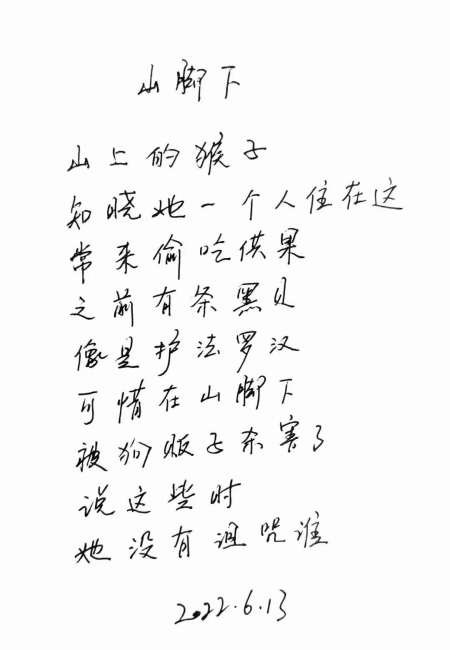 山脚下
山上的猴子
知晓她一个人住在这
常来偷吃供果
之前有条黑贝
像是护法罗汉
可惜在山脚下
被狗贩子杀害了
说这些时
她没有诅咒谁
2022.6.13